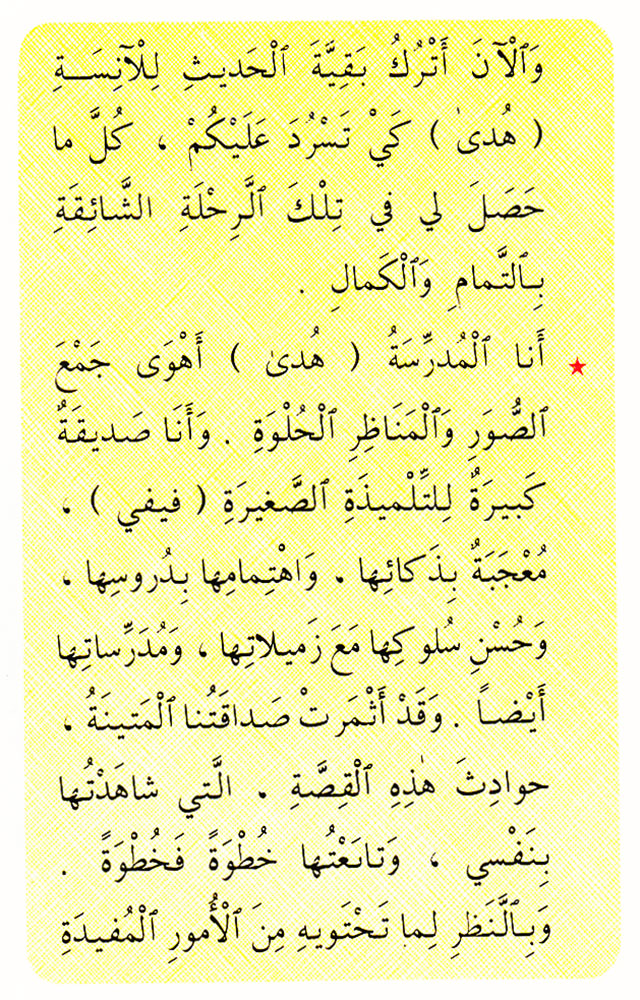 وَٱلْآنَ أَتْرُكُ بَقِيَّةَ ٱلْحَديثِ لِلْآنِسَــةِ
( هُدىٰ ) كَيْ تَسْرُدَ عَلَيْكُمْ ، كُلَّ ما
حَصَلَ لي في تِلْكَ ٱلرِّحْلَةِ الشَّائِقَةِ
بِٱلتَّمامِ وَٱلْكَمالِ .
★ أَنا ٱلْمُدرِّسَةُ ( هُدىٰ ) أَهْوَى جَمْعَ
ٱلصُّوَرِ وَٱلْمَنَاظِرِ ٱلْحُلْوَةِ . وَأَنَا صَديقَةٌ
كَبيرَةٌ لِلتِّلْميذَةِ ٱلصَّغيرَةِ ( فيفي ) ،
مُعْجَبَةٌ بِذَكائِها . وَاهْتِمامِها بِدُروسِها ،
وَحُسْنِ سُلوكِها مَعَ زَميلاتِها ، وَمُدَرِّساتِها
أَيْضاً . وَقَدْ أَثْمَرتْ صَداقَتُنا ٱلْمَتينَةُ ،
حوادِثَ هٰذِهِ ٱلْقِصَّةِ . الَّتي شاهَدْتُها
بِنَفْسي ، وَتابَعْتُها خُطْوَةً فَخُطْوَةً .
وَبِٱلنَّظَرِ لِما تَحْتَويهِ مِنَ ٱلْأُمورِ ٱلْمُفيدَةِ